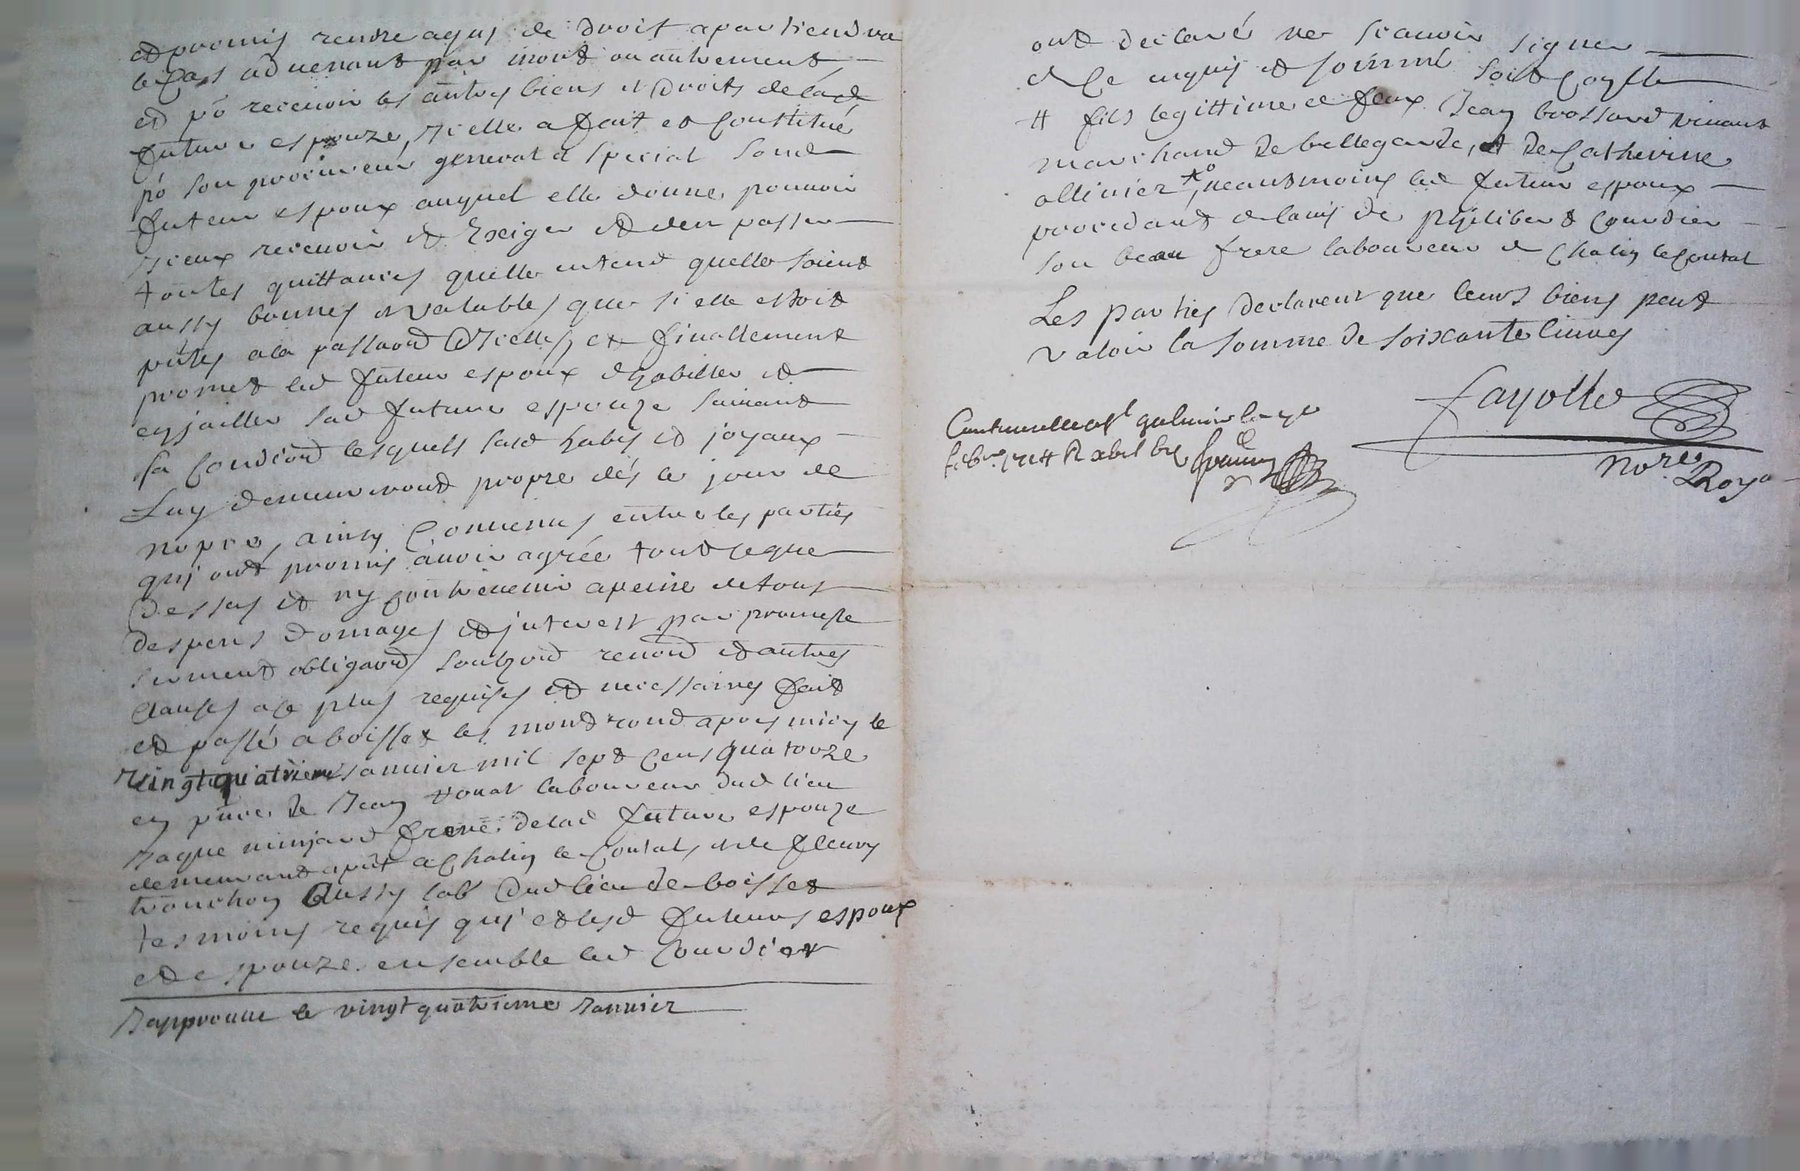 et promis rendre a qui de droit apartiendra
le Cas advenant par mort ou autrement
et po recevoir les autres biens et droits de lad
future espouze, Icelle a fait et Constitué
po son procureur general et special sond
futeur espoux auquel elle donne pouvoir
Iceux recevoir et Exiger et den passer
toutes quittances quelle entend quelle soient
aussy bonnes et valables que si elle estoit
pntes a la passaon dIcelles, et finallement
promet led futeur espoux dhabiller et
enjoailler sad future espouze suivant
sa Condiond lesquels said habis et joyaux
Luy demeureront propre dés le jour de
nopces, ainsy Convenus entre les parties
qui ont promis avoir agrée tout ceque
dessus et ny Contrevenir a peine de tous
despens domages et interest par promesse
serment obligaond soubzond renond et autres
clauses a ce plus requises et necessaires fait
et passé a boisset les montrond apres midy le
vingtquatrieme Janvier mil sept cens quatorze
en pnce de Jean laboureur dud lieu
Jaque minjard frere de lad future espouze
demeurant apnt a Chalin le Contal, et de fleury
tronchon Aussy lab dud lieu de boisset
tesmoins requis qui et lesd futeurs espoux
et espouze ensemble led Courdier
Japprouve le vingtquatrieme Janvier
ont declaré ne scavoir signer
de ce enquis et sommé soit Conllé
# fils legittime de feux Jean brossard vivant
marchand de bellegarde, et de Catherine
ollivier neansmoins led futeur espoux
procedant de lavis de philibert Courdier
son beau frere laboureur de Chalin le Contal
Les parties declarent que leurs biens peut
valoir la somme de soixante livres
Fayolle
Norre Roya
Controllé a St galmier le
febvr 1714 R